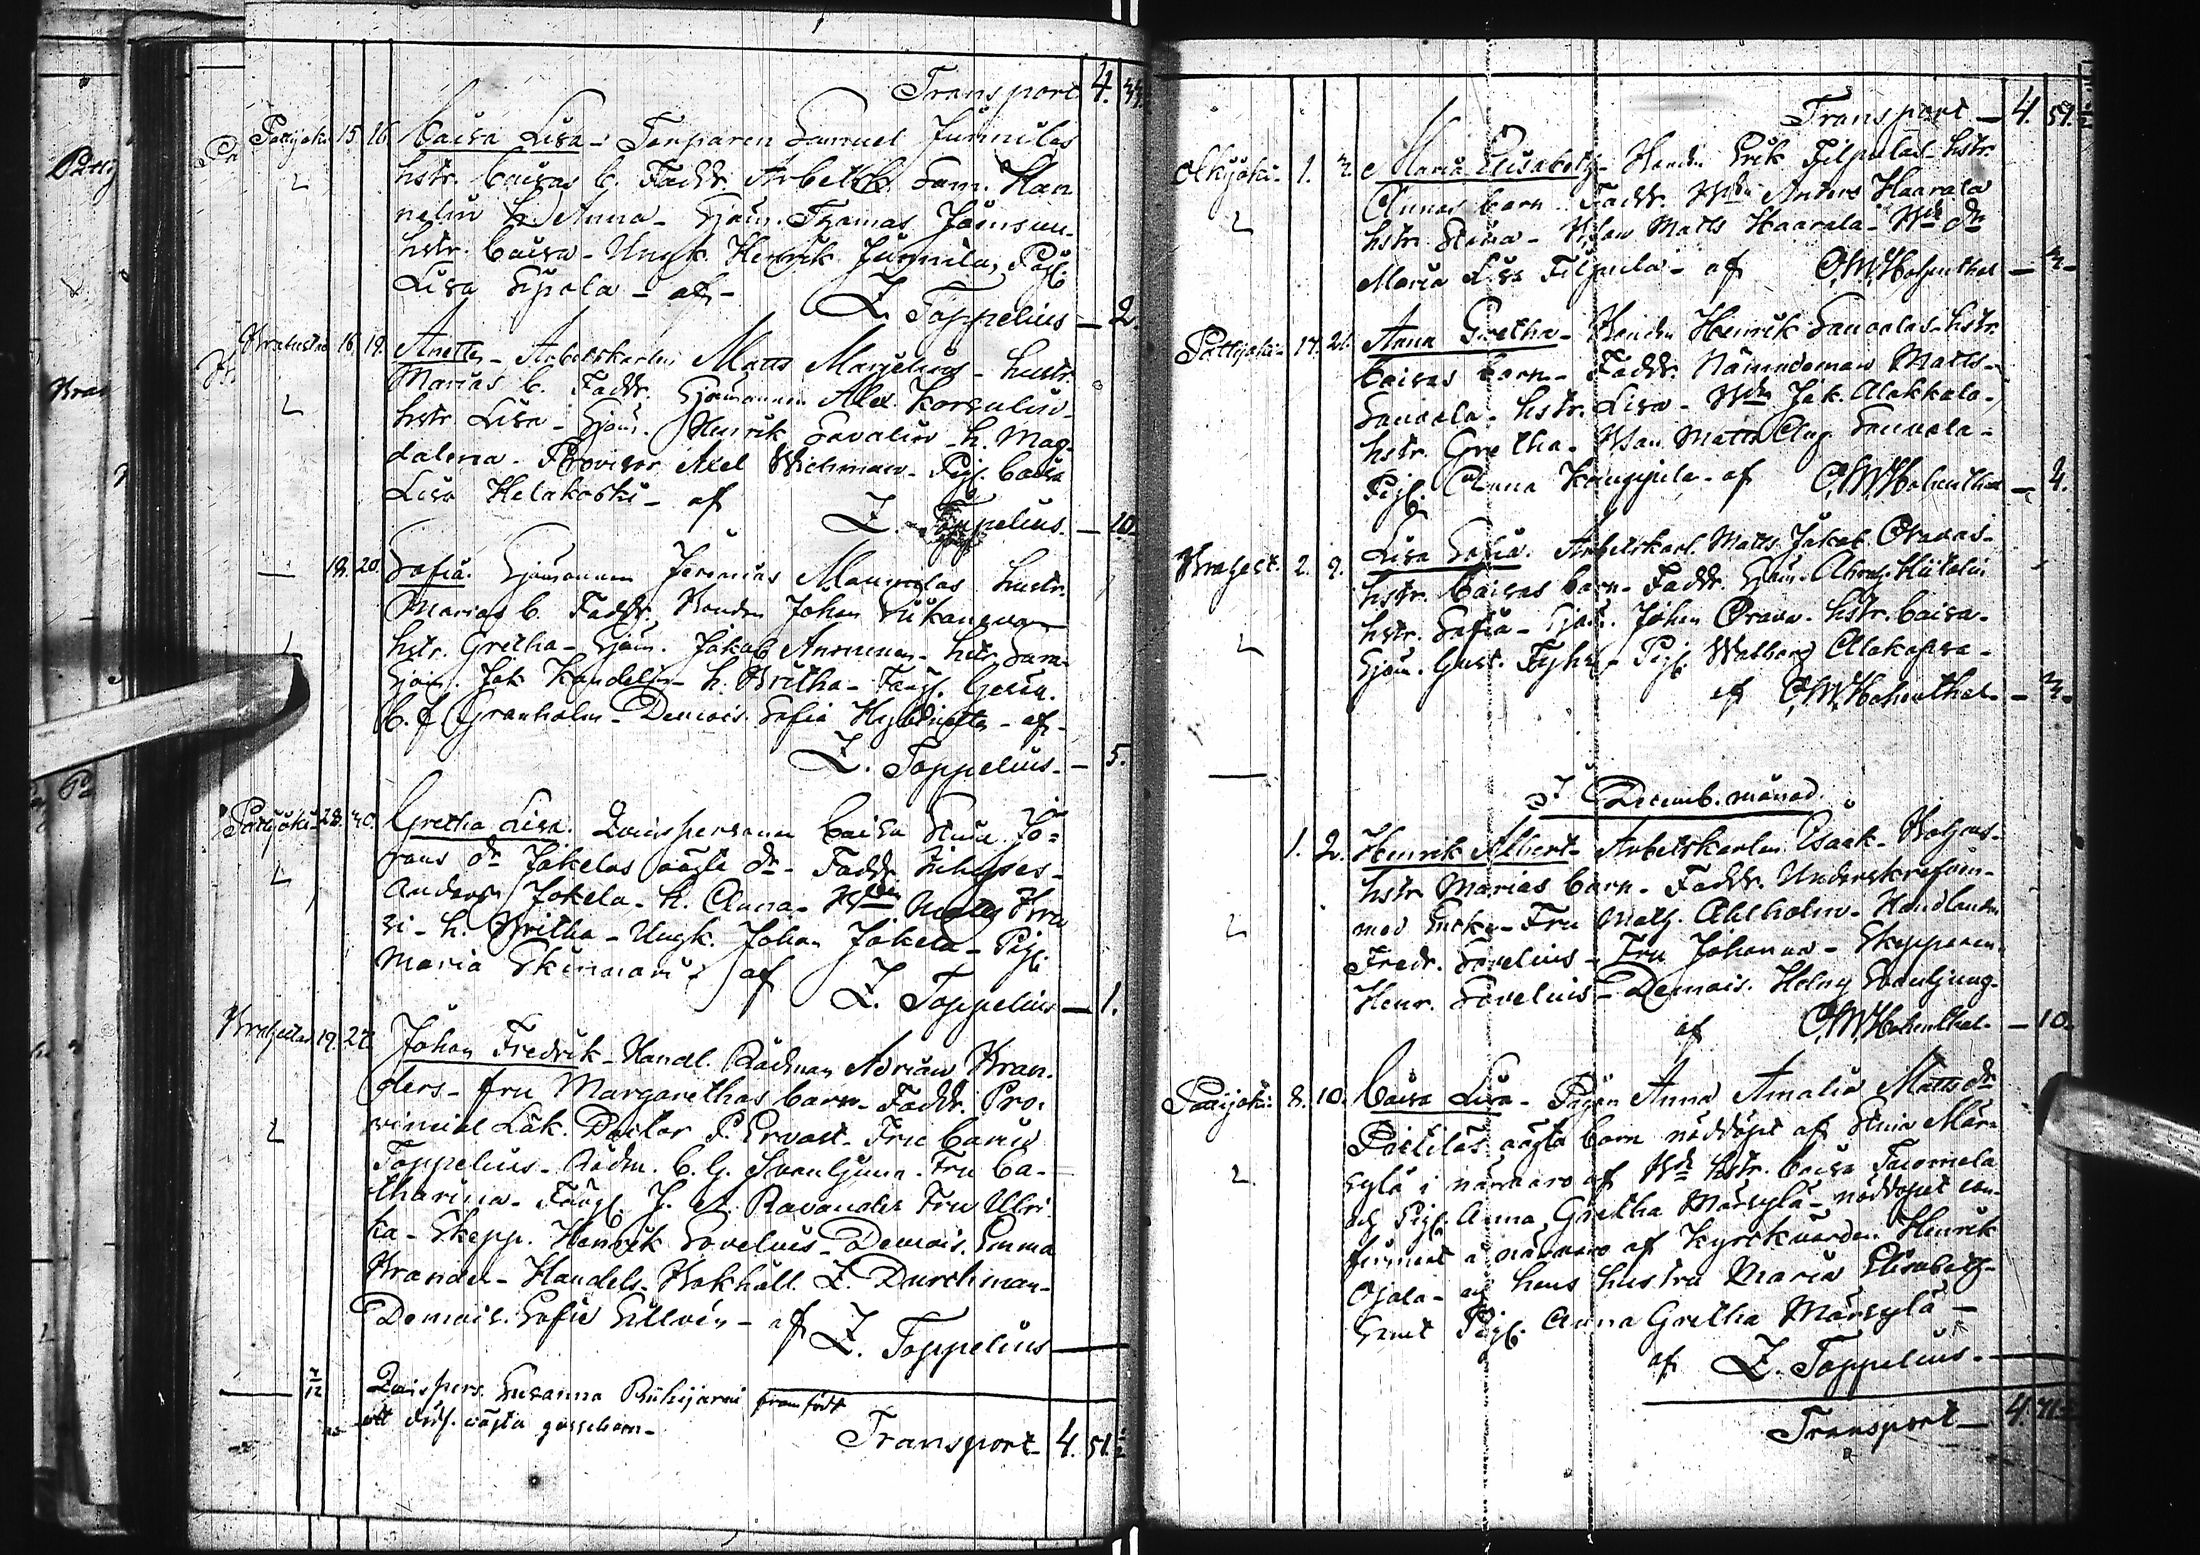 Transport 4.
Pattijoki 15 16. Caisa Lisa - Tenparen Samuel Junnilas
hstr. Caisas b. Faddr. Arbetsk. Sam. Han
nelin h. Anna - Sjöm. Thomas Joensuu
hstr. Caisa - Ungk. Henrik Junnila, Pig.
Lisa Sipola - af -
Z. Toppelius - 2.
Brahestad 16. 19. Anette - Arbetskarlen Matts Marjelius - hustr.
Marias b. Faddr. Sjömannen Alex. Korsulin -
hstr. Lisa - Sjöm. Henrik Savalin - h. Mag-
dalena - Provisor Axel Wichman - Pig. Caisa
Lisa Helakoski - af
Z. Toppelius. - 10.
18. 20. Sofia. Sjömannen Jeremias Mannelas hustr.
Marias b. Faddr. Bonden Johan
hstr. Gretha - Sjöm. Jakob Anonen - hstr. Sara
Sjöm. Jak Kandelin - h. Britha - Fängl.
C. J. Granholm - Demois. Sofia - af -
Z. Toppelius. - 5.
Pattijoki 28. 30. Gretha Lisa. Qvinspersonen Caisa Stina Jö-
rans dr Jokelas oägta dr - Faddr. Inhyses -
Anders Jokela - h. Anna - Matts
- h. Britha - Ungk. Johan Jokela - Pig.
Maria Skinnari af
Z. Toppelius - 1.
Brahestad 19. 27. Johan Fredrik - Handl. Rådman Adrian Bran-
ders - fru Margarethas barn - Faddr. Pro-
vincial Läk. Doctor P. Ervast - Fru Carin
Toppelius - Rådm. C. G. Svanljung - Fru Ca-
tharina - Fängl. J. A. Ravander Fru Ulri-
ka - Skepp. Henrik Sovelius - Demois. Emma
Brander - Handels Bokhåll. Z. Durchman -
Demois. Sofie Gellvén - af Z. Toppelius
7/12 Qvispers. Susanna framfödt
ett död. oägta gossebarn -
Transport - 4. 51.
Transport - 4. 51.
Olkijoki - 1. 3. Maria Elisabeth - Bonden Erik Filpulas hstr.
Annas barn - Faddr. Bdn Anters Haarala
hstr. Stina - Bson Matts Haarala - Bds dr
Maria Lisa Filpula - af C.W. Hohenthal - 3 -
Pattijoki - 17. 21. Anna Gretha - Bonden Henrik Sauvolas hstr.
Caisas barn - Faddr. Nämndeman Matts -
Sauvola - hstr. Lisa - Bdn Jak. Alakkala -
hstr. Gretha - Bson Matts Aug. Sauvola -
Pig. Anna Kauppila - af C.W. Hohenthal - 2.
Brahest. 2. 9. Lisa Sofia. Arbetskarl. Matts Jakob Oravas -
hstr. Caisas barn - Faddr. Sjöm. Abrah.
hstr. Sofia - Sjöm. Johan Orava - hstr. Caisa -
Sjöm. Gust. Fyhr - Pig. Walborg Alakopsa -
af C.W. Hohenthal - 3 -
I Decemb. månad.
1. 2. Henrik Albert - Arbetskarlen Isaak
hstr. Marias barn - Faddr.
- Fru Math. Ahlholm - Handlanden
Fredr. Sovelius - Fru Johanna - Skepparen
Henr. Sovelius - Demois. Helny Svanljung -
af C.W. Hohenthal - 10.
Pattijoki 8. 10. Caisa Lisa - Pigan Anna Amalia Matts dr
Pietiläs oägta barn nöddöpt af Stina Mär-
sylä i närvaro af Bd. hstr. Caisa Tuomela
och Pig. Anna Gretha Märsylä - nöddopet con-
firmert i närvaro af Kyrkvärden Henrik
Ojala - och hans hustru Maria Elisabeth -
samt Pig. Anna Gretha Märsylä -
af Z. Toppelius.
Transport - 4. 71